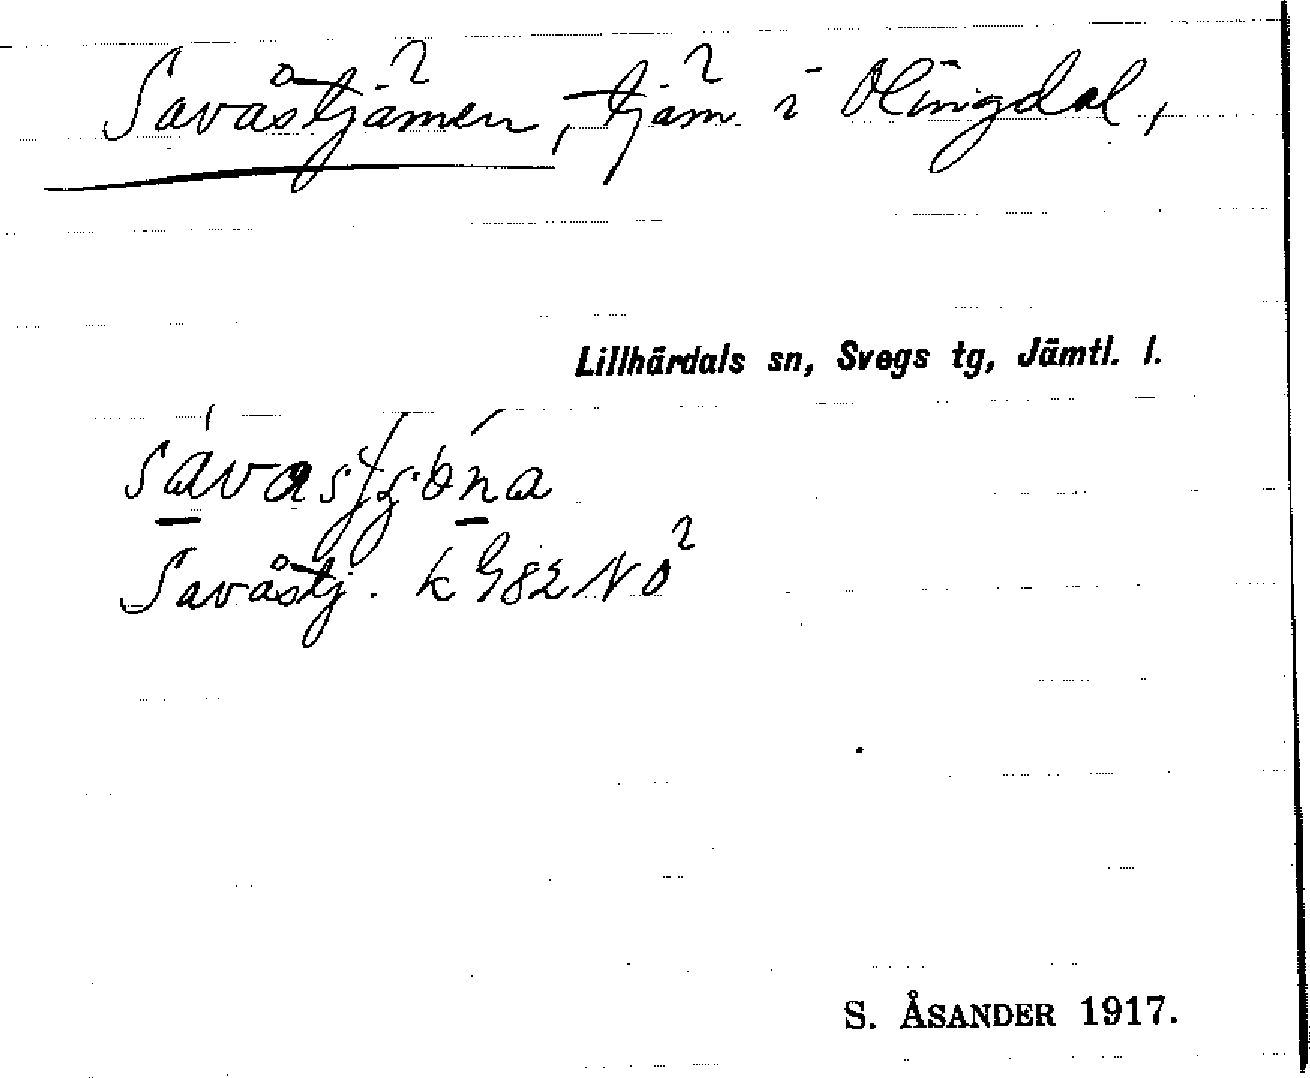 Savåstjärnen, tjärn i Olingdal,
Lillhärdals sn, Svegs tg, Jämtl. l.
Savåstj. k G82 NO
S. ÅSANDER 1917.